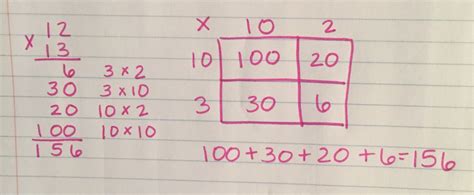 12
× 13
6 3 × 2
30 3 × 10
20 10 × 2
100 10 × 10
156
× 10 2
10 100 20
3 30 6
100 + 30 + 20 + 6 = 156